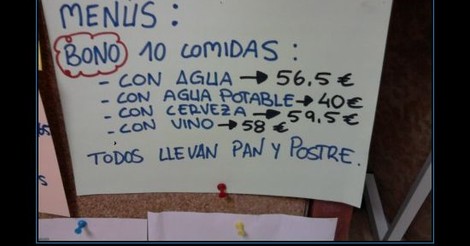 MENÚS :
BONO 10 COMIDAS :
- CON AGUA → 56,5 €
- CON AGUA POTABLE → 40 €
- CON CERVEZA → 59,5 €
- CON VINO → 58 €
TODOS LLEVAN PAN Y POSTRE.